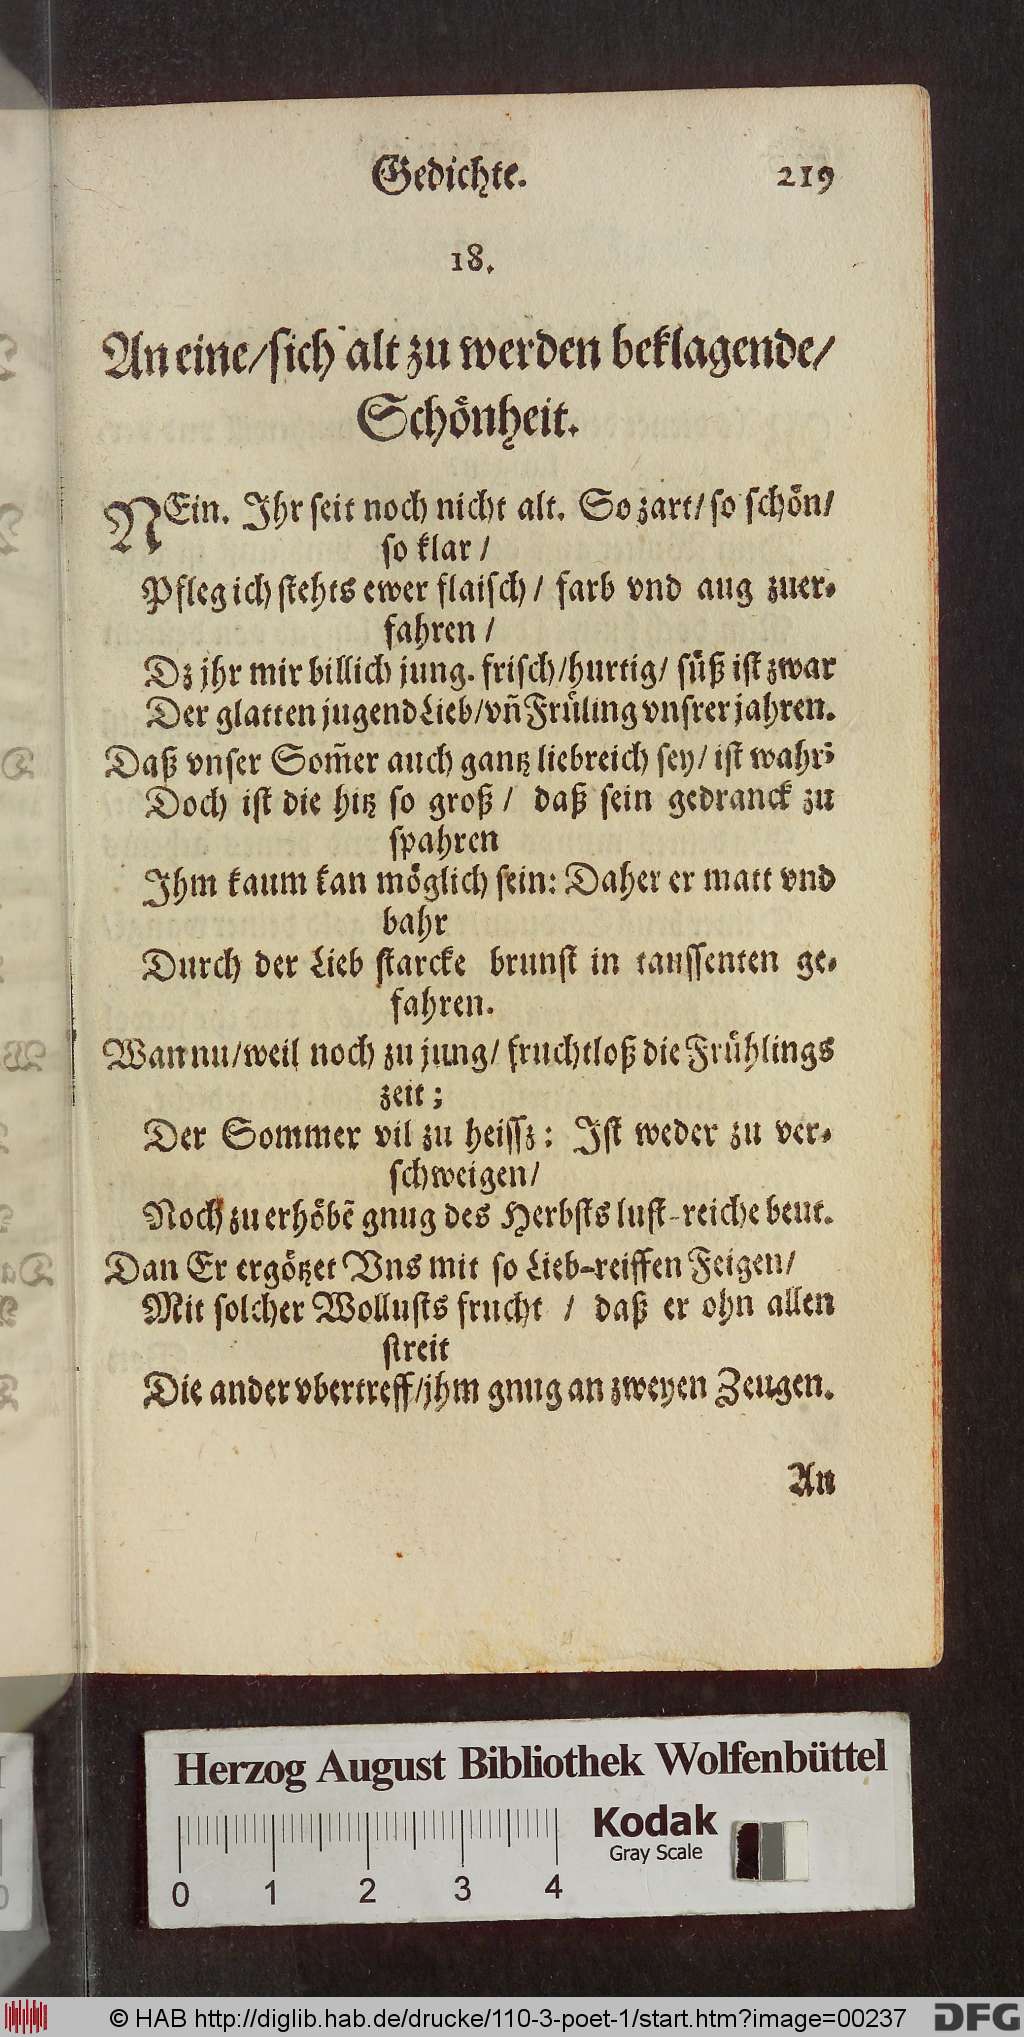 Gedichte. 219
18.
An eine/sich alt zu werden beklagende/
Schönheit.
NEin. Ihr seit noch nicht alt. So zart/ so schön/
so klar /
Pfleg ich stehts ewer flaisch / farb vnd aug zuer-
fahren /
Dz jhr mir billich jung. frisch/hurtig/ süß ist zwar
Der glatten jugend Lieb/vn̄ Früling vnsrer jahren.
Daß vnser Som̄er auch gantz liebreich sey/ ist wahr:
Doch ist die hitz so groß / daß sein gedranck zu
spahren
Ihm kaum kan möglich sein: Daher er matt vnd
bahr
Durch der Lieb starcke brunst in taussenten ge-
fahren.
Wan nu/weil noch zu jung/ fruchtloß die Frühlings
zeit ;
Der Sommer vil zu heissz : Ist weder zu ver-
schweigen/
Noch zu erhöbē gnug des Herbsts lust-reiche beut.
Dan Er ergötzet Vns mit so Lieb-reiffen Feigen/
Mit solcher Wollusts frucht / daß er ohn allen
streit
Die ander vbertreff/jhm gnug an zweyen Zeugen.
An
Herzog August Bibliothek Wolfenbüttel
Kodak
Gray Scale
0 1 2 3 4
© HAB http://diglib.hab.de/drucke/110-3-poet-1/start.htm?image=00237 DFG